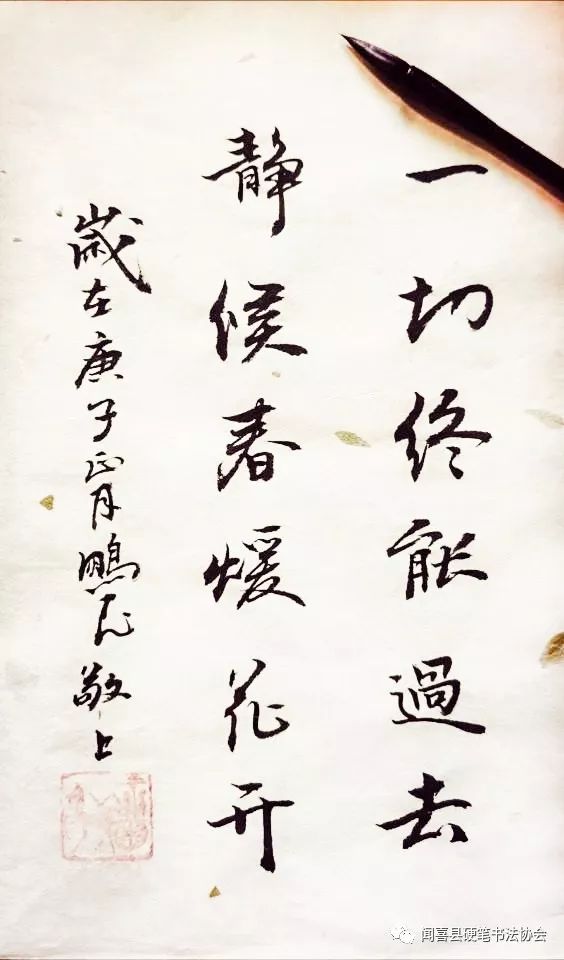 一切终能過去
静候春煖花开
歲在庚子正月鵬飞敬上
闻喜县硬笔书法协会